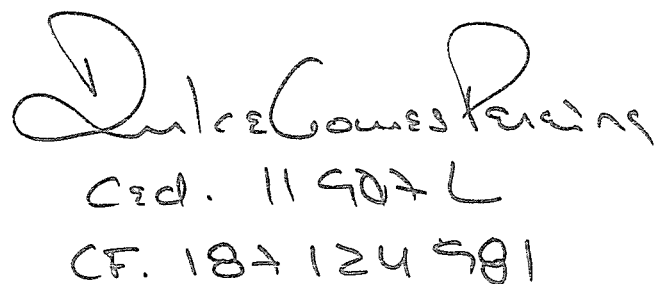 Dulce Gomes Pereira
Ced. 11907L
CF. 187124981